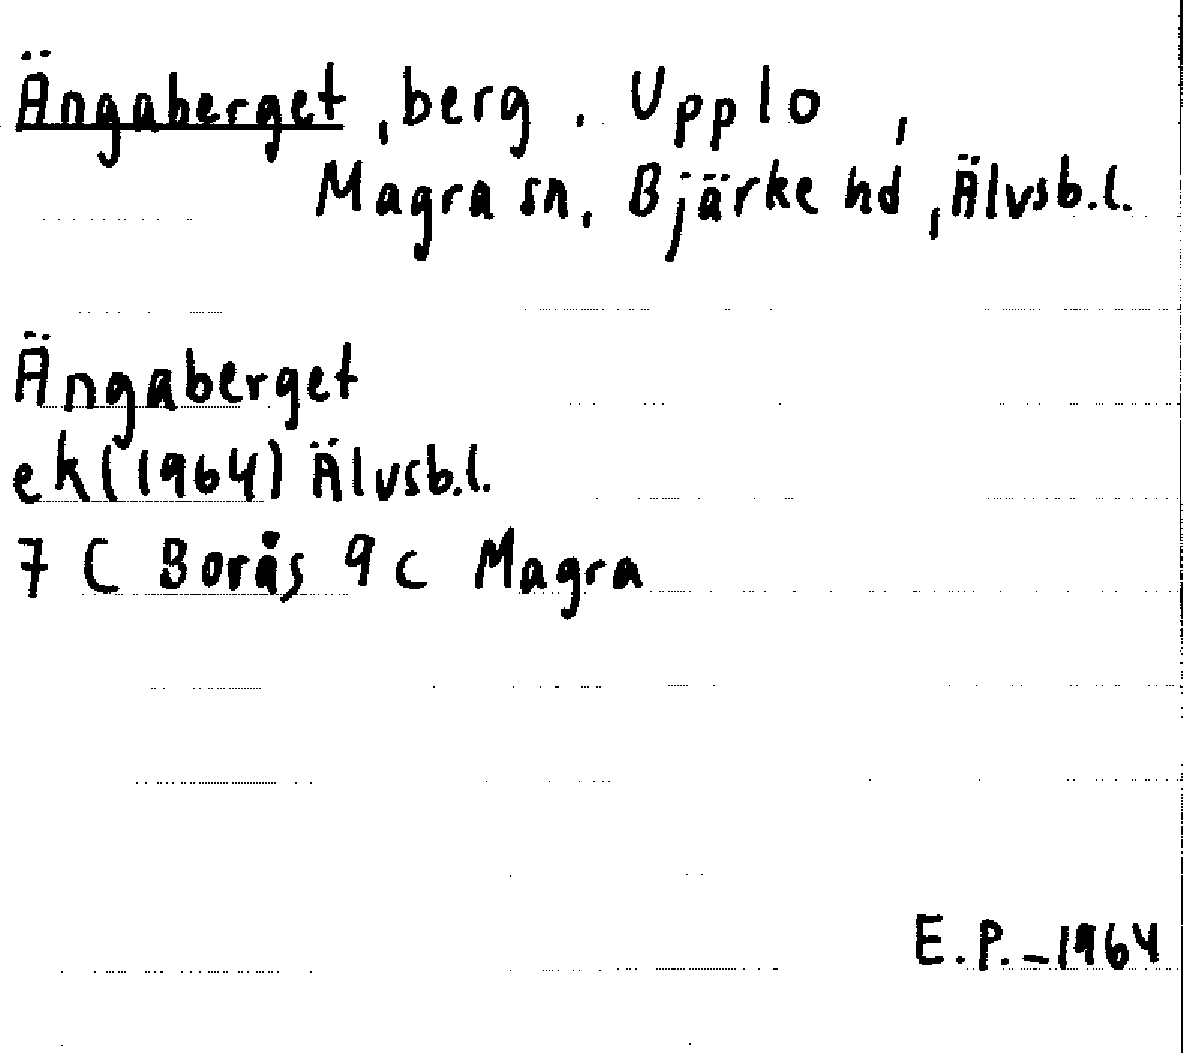 Ängaberget, berg. Upplo,
Magra sn, Bjärke hd, Älvsb.l.
Ängaberget
ek (1964) Älvsb.l.
7 C Borås 9 c Magra
E.P. - 1964